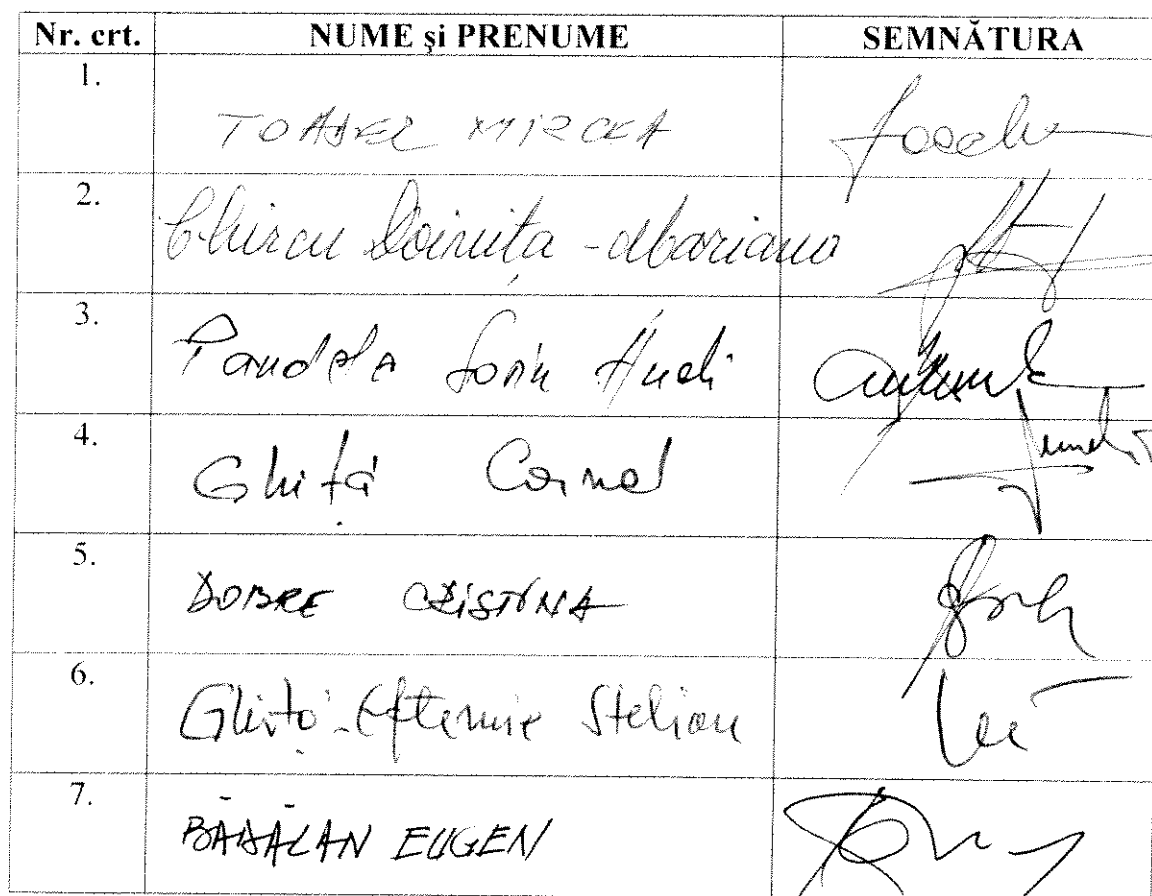 Nr. crt. NUME şi PRENUME SEMNĂTURA
1. TOADER MIRCEA
2. Chircu Doinița-Mariana
3. Pandele Sorin Andi
4. Ghiță Cornel
5. DOBRE CRISTINA
6. Ghiță-Eftemie Stelian
7. BĂDĂLAN EUGEN